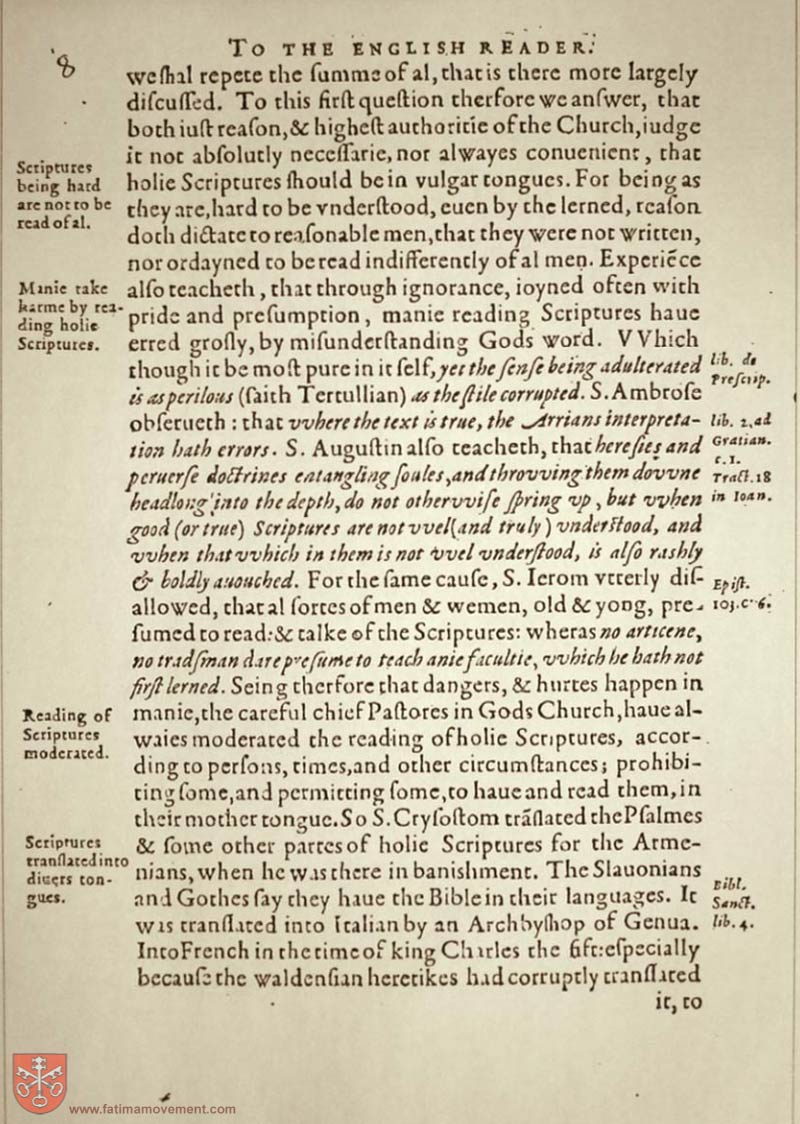 8
TO THE ENGLISH READER.
weſhal repete the ſumme of al, that is there more largely
diſcuſſed. To this firſt queſtion therfore we anſwer, that
both iuſt reaſon, & higheſt authoritie of the Church, iudge
it not abſolutly neceſſarie, nor alwayes conuenient, that
holie Scriptures ſhould be in vulgar tongues. For being as
they are, hard to be vnderſtood, euen by the lerned, reaſon
doth dictate to reaſonable men, that they were not written,
nor ordayned to be read indifferently of al men. Experiẽce
alſo teacheth, that through ignorance, ioyned often with
pride and preſumption, manie reading Scriptures haue
erred groſly, by miſunderſtanding Gods word. VVhich
though it be moſt pure in it ſelf, yet the ſenſe being adulterated
is as perilous (ſaith Tertullian) as the ſtile corrupted. S. Ambroſe
obſerueth: that vvhere the text is true, the Arrians interpreta-
tion hath errors. S. Auguſtin alſo teacheth, that hereſies and
peruerſe doctrines entangling ſoules, and throvving them dovvne
headlong into the depth, do not othervviſe ſpring vp, but vvhen
good (or true) Scriptures are not vvel (and truly) vnderſtood, and
vvhen that vvhich in them is not vvel vnderſtood, is alſo raſhly
& boldly auouched. For the ſame cauſe, S. Ierom vtterly diſ-
allowed, that al ſortes of men & wemen, old & yong, pre-
ſumed to read: & talke of the Scriptures: wheras no articene,
no tradſman dare preſume to teach anie facultie, vvhich he hath not
firſt lerned. Seing therfore that dangers, & hurtes happen in
manie, the careful chief Paſtores in Gods Church, haue al-
waies moderated the reading of holie Scriptures, accor-
ding to perſons, times, and other circumſtances; prohibi-
ting ſome, and permitting ſome, to haue and read them, in
their mother tongue. So S. Cryſoſtom trãſlated the Pſalmes
& ſome other partes of holie Scriptures for the Arme-
nians, when he was there in baniſhment. The Slauonians
and Gothes ſay they haue the Bible in their languages. It
was tranſlated into Italian by an Archbyſhop of Genua.
Into French in the time of king Charles the fift: eſpecially
becauſe the waldenſian heretikes had corruptly tranſlated
it, to
Scriptures
being hard
are not to be
read of al.
Manie take
harme by rea-
ding holie
Scriptures.
Reading of
Scriptures
moderated.
Scriptures
tranſlated into
diuers ton-
gues.
lib. de
Preſcrip.
lib. 2. ad
Gratian.
c. 1.
Tract. 18
in Ioan.
Epiſt.
103. c. 6.
Bibl.
Sanct.
lib. 4.
www.fatimamovement.com